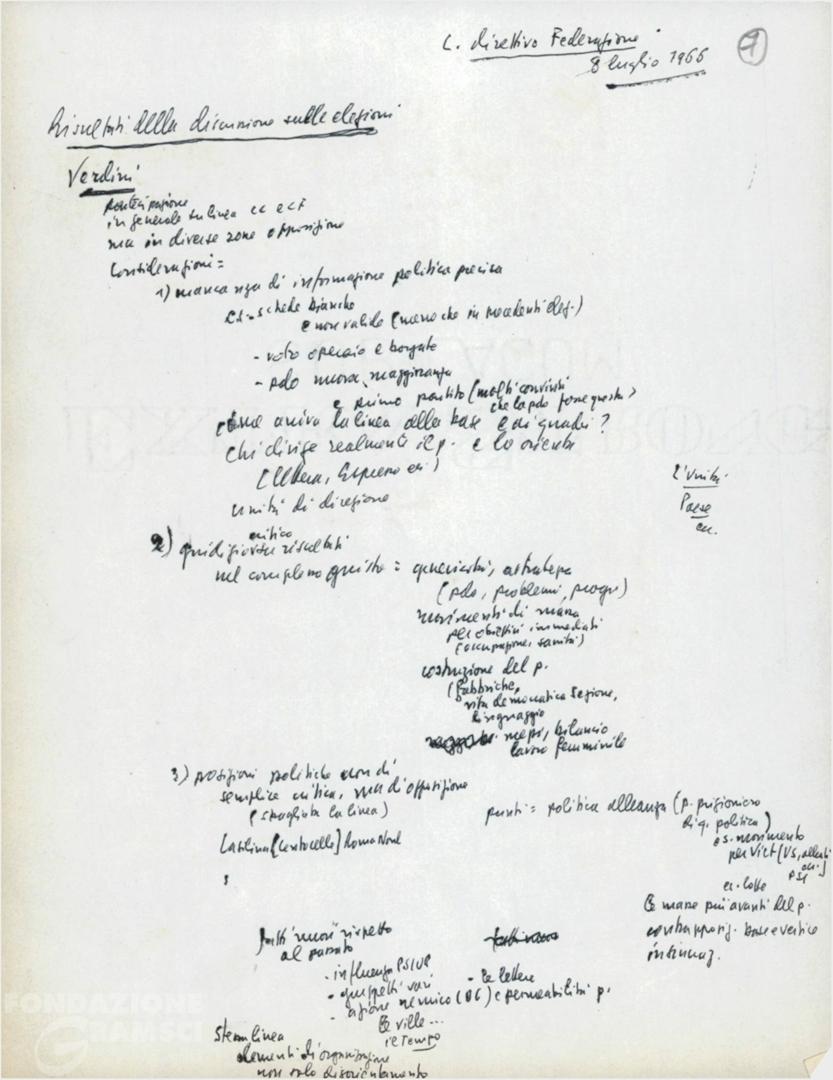 C. direttivo Federazione
8 luglio 1966
1
Risultati della discussione sulle elezioni
Verdini
partecipazione
in generale su linea CC e CF
ma in diverse zone opposizione
Considerazioni =
1) mancanza di informazione politica precisa
es. - schede bianche
e non valide (meno che in precedenti elez.)
- voto operaio e borgate
- solo nuova maggioranza
e primo partito (molti convinti
che la
Come arriva la linea alla base e ai quadri?
Chi dirige realmente il p. e lo orienta
(Espresso ecc)
unità di direzione
L'Unità
Paese
ecc.
2) critico
risultati
nel complesso giusto = genericità, astrattezza
(problemi, progr)
movimenti di massa
per obiettivi immediati
(occupazione, sanità)
costruzione del p.
(fabbriche,
vita democratica sezione,
linguaggio
bilancio
lavoro femminile
3) posizioni politiche non di
semplice critica, ma di opposizione
(sbagliata la linea)
punti = politica alleanza (p. prigioniero
di q. politica)
es. movimento
per Viet (US, alleati
ecc.)
PSI
es. lotte
Casilina [Centocelle] Roma Nord
le masse più avanti del p.
contrapposiz. base e vertice
internaz.
fatti "nuovi" rispetto
al passato
- influenza PSIUP
- gruppetti vari
- le lettere
- azione nemico (DC) e permeabilità p.
Le ville...
il Tempo
stessa linea
elementi di organizzazione
non solo disorientamento
FONDAZIONE
GRAMSCI